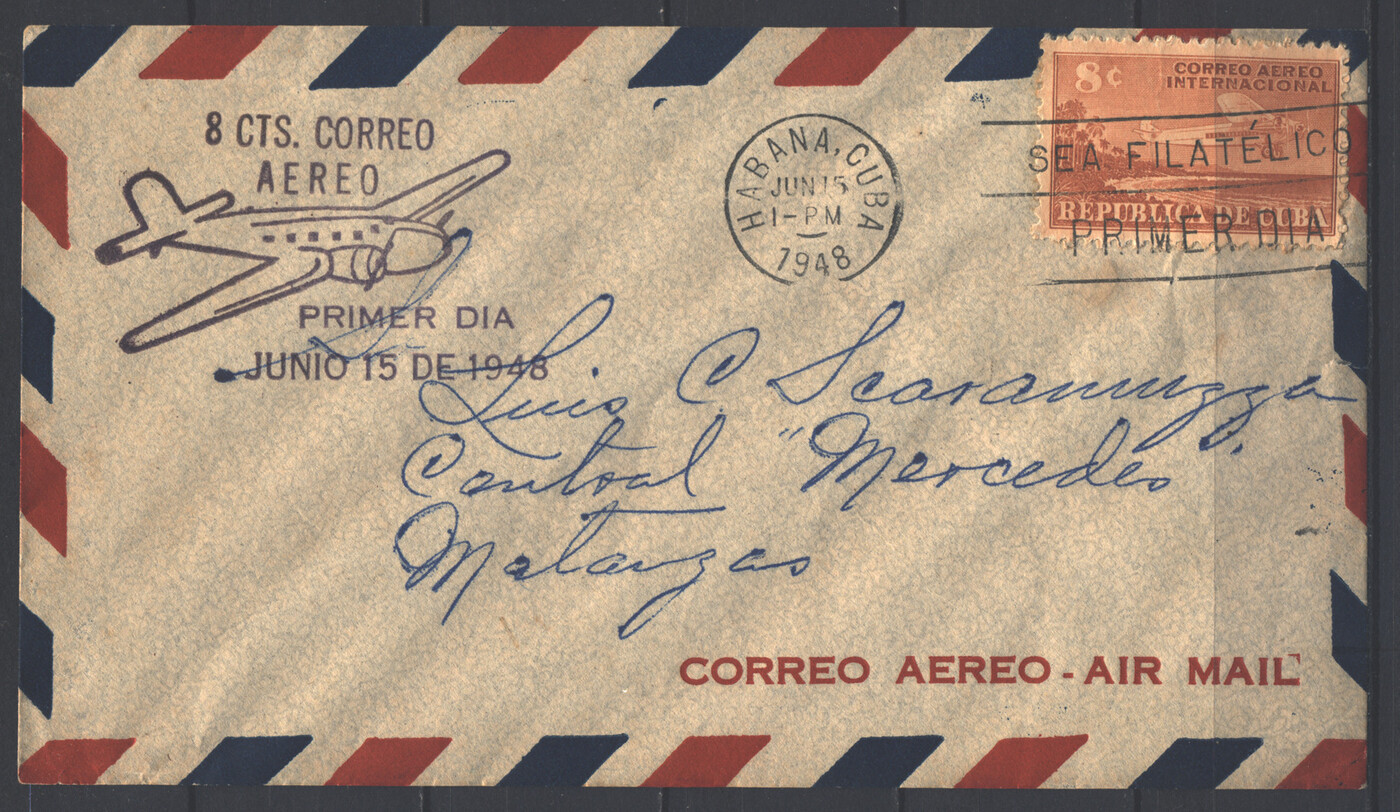 8 CTS. CORREO
AEREO
PRIMER DIA
JUNIO 15 DE 1948
HABANA, CUBA
JUN 15
1-PM
1948
8¢
CORREO AEREO
INTERNACIONAL
REPUBLICA DE CUBA
SEA FILATÉLICO
PRIMER DIA
Luis C Scaramuzza
Central "Mercedes"
Matanzas
CORREO AEREO - AIR MAIL